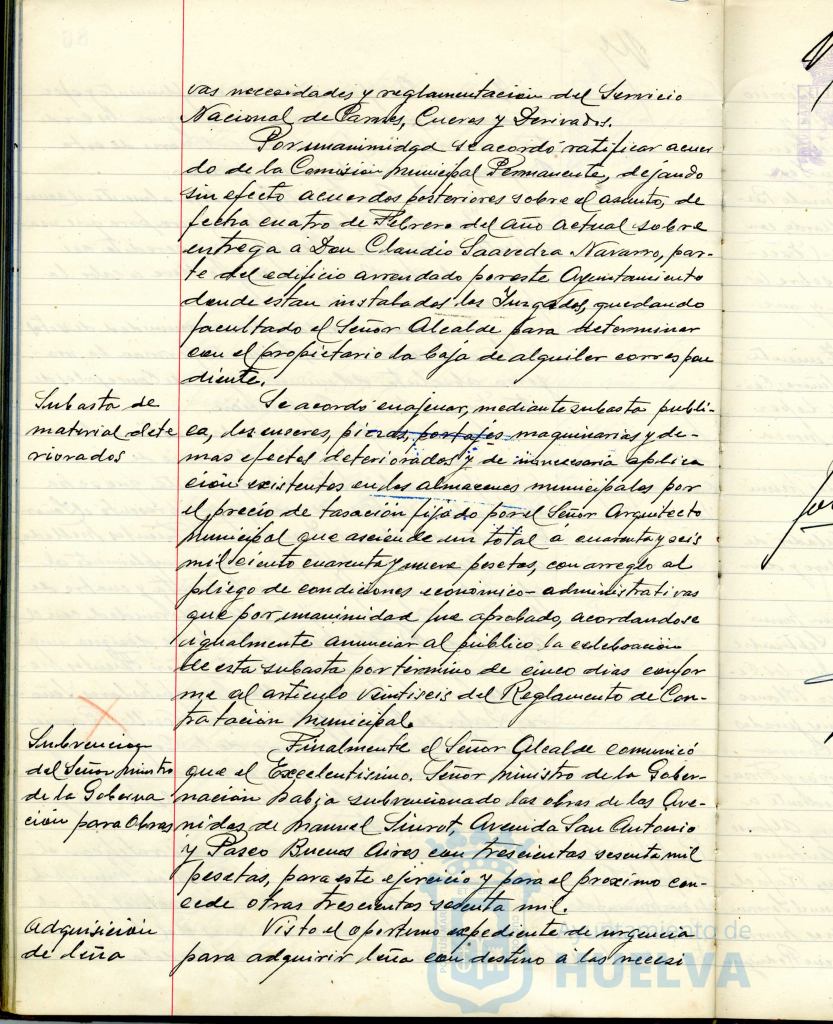 vas necesidades y reglamentación del Servicio
Nacional de Carnes, Cueros y Derivados.
Por unanimidad se acordó ratificar acuer
do de la Comisión Municipal Permanente, dejando
sin efecto acuerdos posteriores sobre el asunto, de
fecha cuatro de Febrero del año actual sobre
entrega á Don Claudio Saavedra Navarro, par-
te del edificio arrendado por este Ayuntamiento
donde estan instalados los Juzgados, quedando
facultado el Señor Alcalde para determinar
con el propietario la baja de alquiler correspon
diente.
Subasta de
material dete
riorados
Se acordó enajenar, mediante subasta públi-
ca, los enseres, piezas, portajes maquinarias y de-
mas efectos deteriorados y de innecesaria aplica
ción existentes en los almacenes municipales por
el precio de tasación fijado por el Señor Arquitecto
Municipal que asciende un total á cuarenta y seis
mil ciento cuarenta y nueve pesetas, con arreglo al
pliego de condiciones económico-administrativas
que por unanimidad fue aprobado, acordandose
igualmente anunciar al público la celebración
de esta subasta por término de cinco dias confor
me al articulo veintiseis del Reglamento de Con-
tratación Municipal.
Subvencion
del Señor Ministro
de la Goberna
ción para Obras
Finalmente el Señor Alcalde comunicó
que el Excelentisimo. Señor Ministro de la Gober-
nación habia subvencionado las obras de las Ave-
nidas de Manuel Siurot, Avenida San Antonio
y Paseo Buenos Aires con trescientas sesenta mil
pesetas, para este ejercicio y para el proximo con-
cede otras trescientas sesenta mil.
Adquisición
de leña
Visto el oportuno expediente de urgencia
para adquirir leña con destino á las necesi
Ayuntamiento de
HUELVA